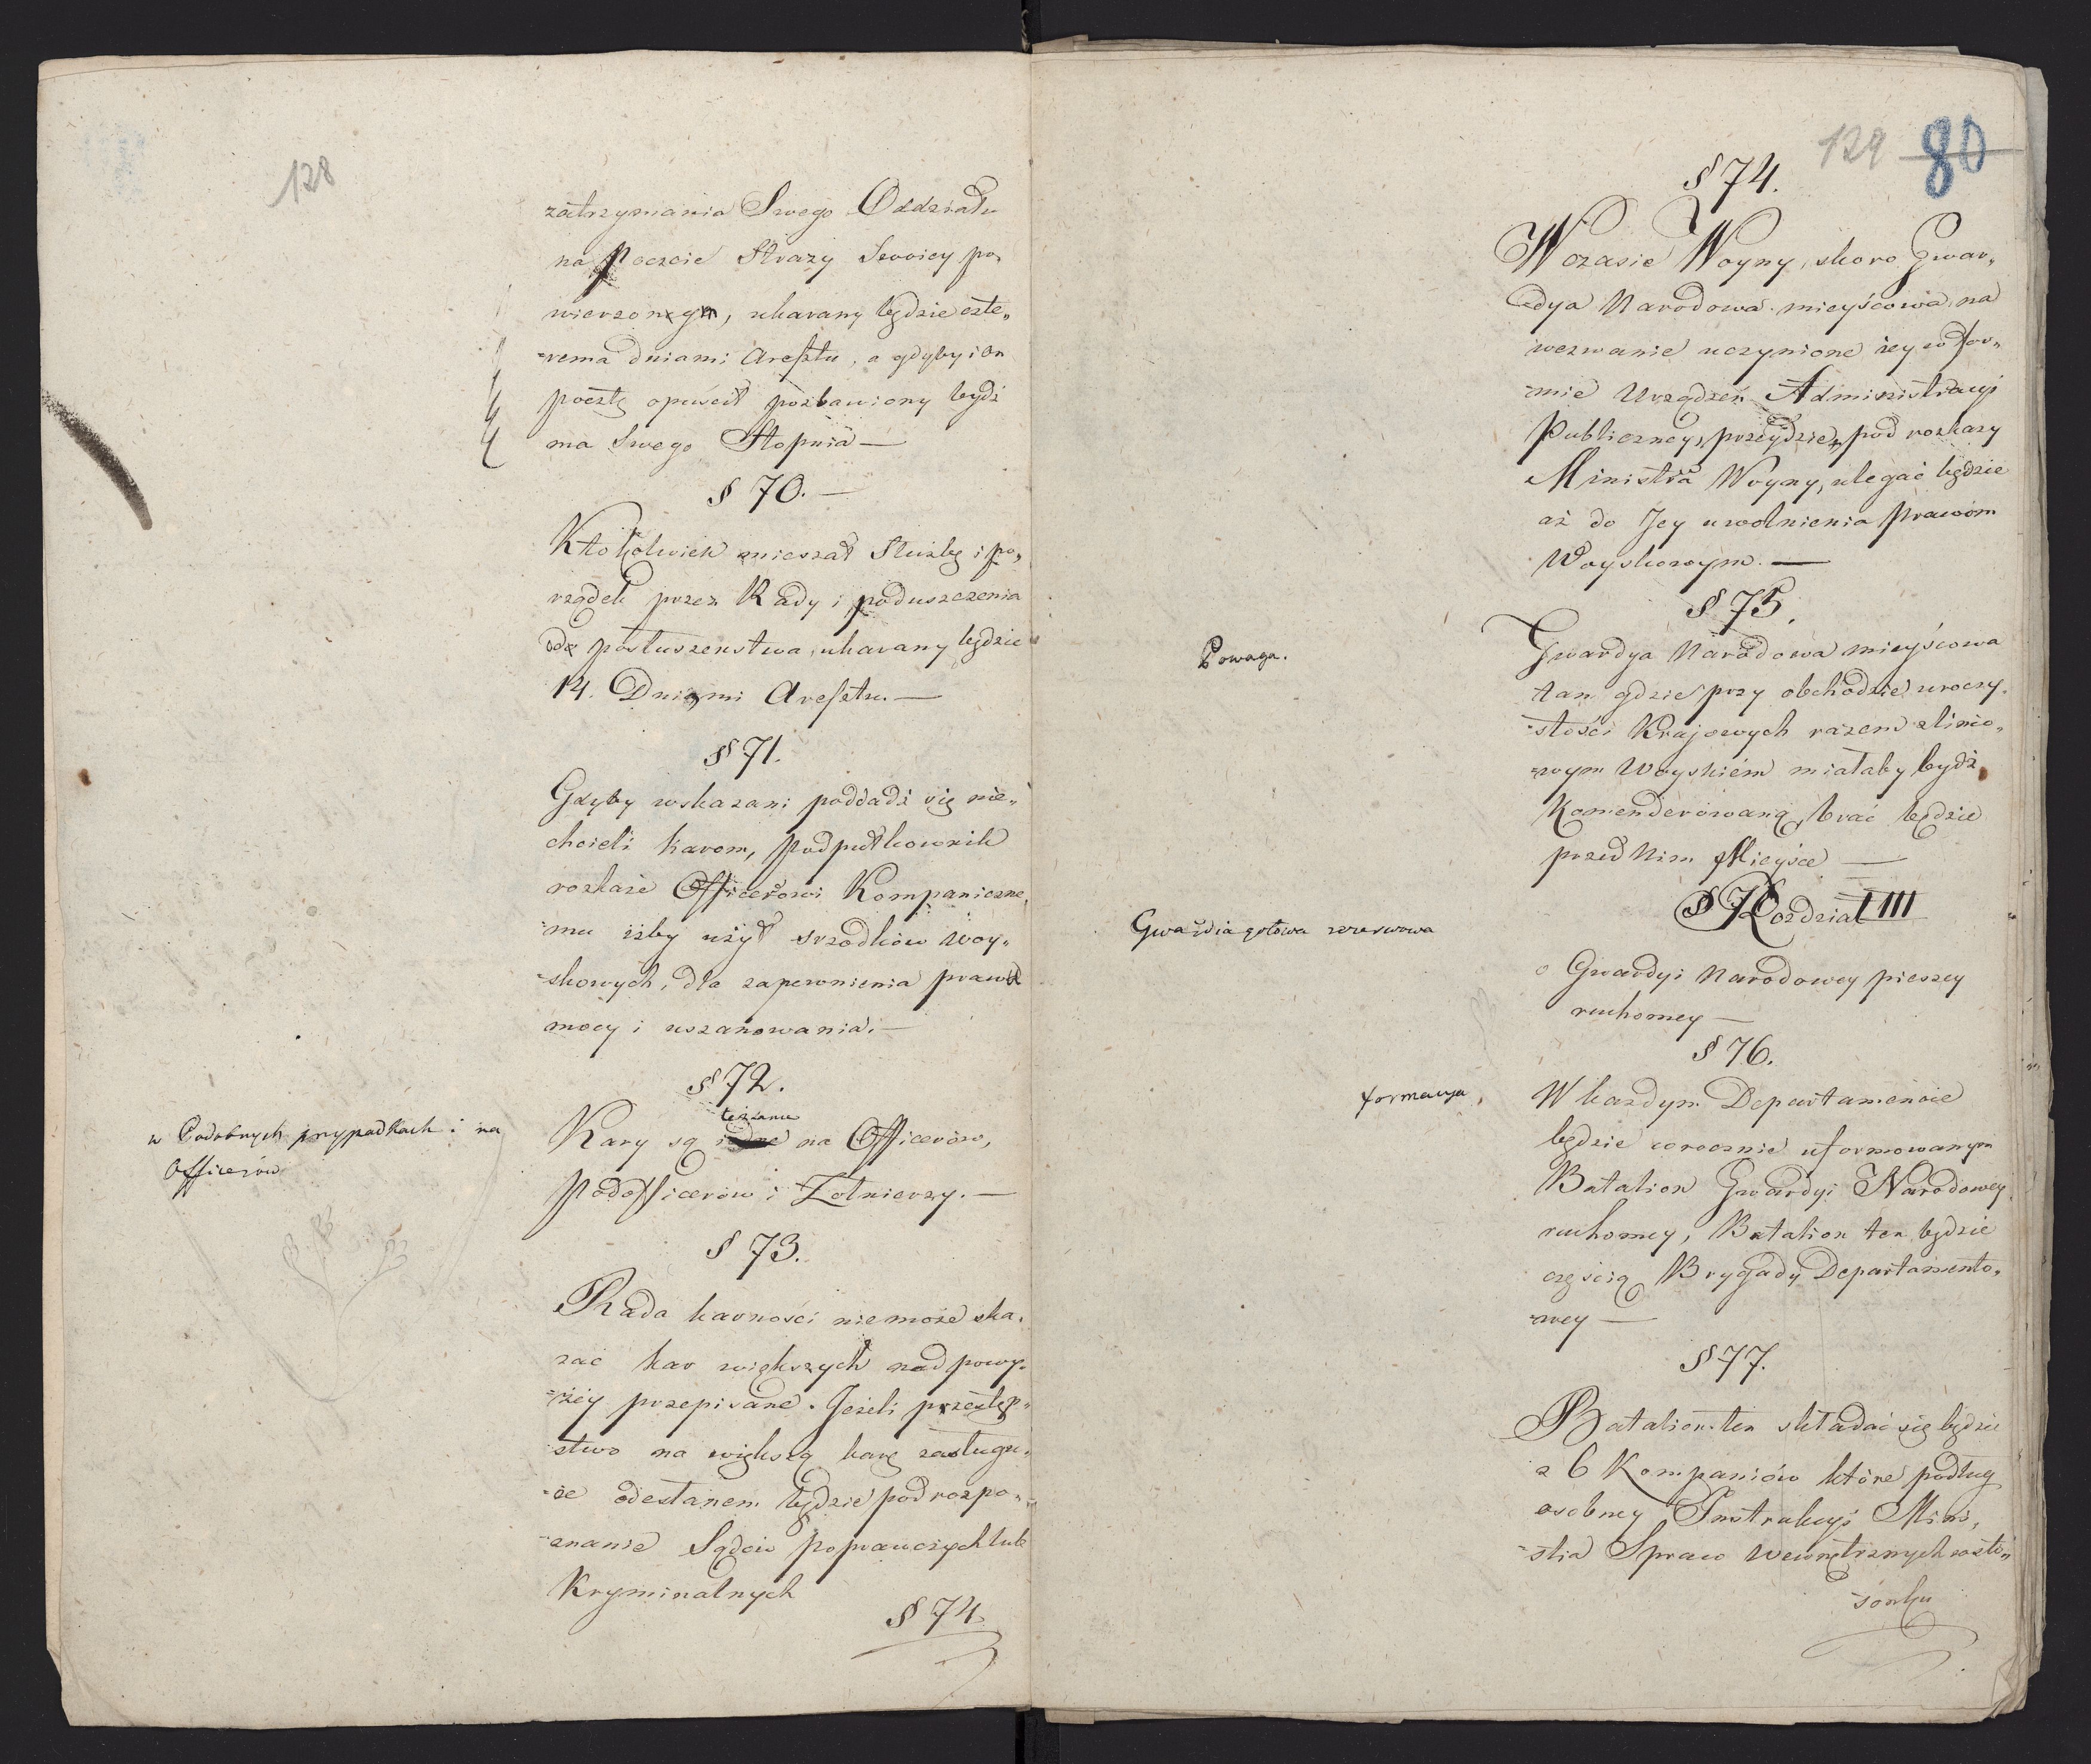 128
zatrzymania Swego Oddziału
na Poczcie Straży Swoiey po„
wierzonego, ukarany będzie czte„
rema dniami Aresztu, a gdyby i on
pocztę opuścił pozbawiony bydź
ma Swego Stopnia —
§ 70. —
Ktokolwiek mieszał Służbę i po„
rządek przez Rady i poduszczenia
do posłuszeństwa, ukarany będzie
14. Dniami Aresztu. —
§ 71.
Gdyby wskazani poddadź się nie„
chcieli karom, Podpułkownik
rozkaże Officerowi Kompaniczne„
mu iżby użył srzodków Woy„
skowych, dla zapewnienia prawa
mocy i uszanowania. —
§ 72.
też same
Kary są na Officerów,
Podofficerów i Żołnierzy. —
w Podobnych przypadkach i na
Officerów
§ 73.
Rada karności nie może ska„
zać kar większych nad powy„
żey przepisane. Jeżeli przestęp„
stwo na większą karę zasługu„
ie odesłanem będzie pod rozpo„
znanie Sądów poprawczych lub
Kryminalnych
§ 74
129 80
§ 74.
W czasie Woyny, skoro Gwar„
dya Narodowa mieyscowa, na
wezwanie uczynione iey w for„
mie Urządzeń Administracyi
Publiczney, przeydzie pod rozkazy
Ministra Woyny, ulegać będzie
aż do Jey uwolnienia Prawom
Woyskowym. —
§ 75.
Powaga.
Gwardya Narodowa mieyscowa
tam gdzie przy obchodzie uroczy„
stości Krajowych razem z linio„
wym Woyskiém miałaby bydź
Komenderowaną, brać będzie
przed Nim Mieysce —
Rozdział III
Gwardia gotowa rezerwowa
o Gwardyi Narodowey pieszey
ruchomey —
§ 76.
formacya
W każdym Departamencie
będzie corocznie uformowanym
Batalion Gwardyi Narodowey
ruchomey, Batalion ten będzie
częścią Brygady Departamento„
wey —
§ 77.
Batalion ten składać się będzie
z 6 Kompaniów które podług
osobney Instrukcyi Mini„
stra Spraw Wewnętrznych w sto„
sunku